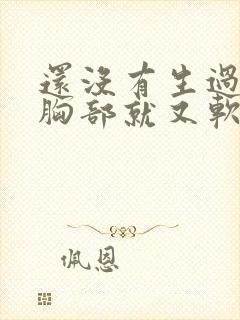 還沒有生過
胸部就又軟
佩恩